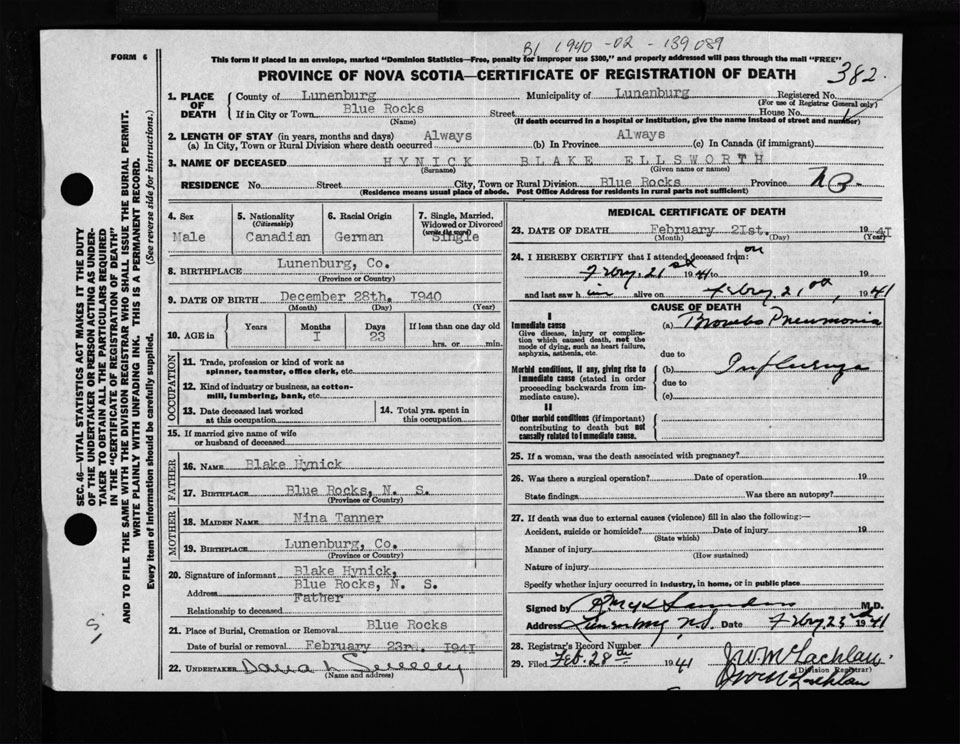 B1 1940-02-139089
FORM 6
This form if placed in an envelope, marked "Dominion Statistics—Free, penalty for improper use $300," and properly addressed will pass through the mail "FREE"
PROVINCE OF NOVA SCOTIA—CERTIFICATE OF REGISTRATION OF DEATH
382
1. PLACE OF DEATH
County of Lunenburg Municipality of Lunenburg Registered No.
(For use of Registrar General only)
If in City or Town Blue Rocks Street House No.
(Name) (If death occurred in a hospital or institution, give the name instead of street and number)
2. LENGTH OF STAY (in years, months and days) Always Always
(a) In City, Town or Rural Division where death occurred (b) In Province (c) In Canada (if immigrant)
3. NAME OF DECEASED HYNICK BLAKE ELLSWORTH
(Surname) (Given name or names)
RESIDENCE No. Street City, Town or Rural Division Blue Rocks Province
(Residence means usual place of abode. Post Office Address for residents in rural parts not sufficient)
4. Sex
Male
5. Nationality
(Citizenship)
Canadian
6. Racial Origin
German
7. Single, Married, Widowed or Divorced
(write the word)
Single
8. BIRTHPLACE Lunenburg, Co.
(Province or Country)
9. DATE OF BIRTH December 28th. 1940
(Month) (Day) (Year)
10. AGE in
Years Months Days If less than one day old
I 23 hrs. or min.
OCCUPATION
11. Trade, profession or kind of work as
spinner, teamster, office clerk, etc.
12. Kind of industry or business, as cotton-
mill, lumbering, bank, etc.
13. Date deceased last worked
at this occupation
14. Total yrs. spent in
this occupation
15. If married give name of wife
or husband of deceased
FATHER
16. NAME Blake Hynick
17. BIRTHPLACE Blue Rocks, N. S.
(Province or Country)
MOTHER
18. MAIDEN NAME Nina Tanner
19. BIRTHPLACE Lunenburg, Co.
(Province or Country)
20. Signature of informant Blake Hynick,
Address Blue Rocks, N. S.
Father
Relationship to deceased
21. Place of Burial, Cremation or Removal Blue Rocks
Date of burial or removal February 23rd. I94I
22. UNDERTAKER
(Name and address)
MEDICAL CERTIFICATE OF DEATH
23. DATE OF DEATH February 2Ist. 19 4I
(Month) (Day) (Year)
24. I HEREBY CERTIFY that I attended deceased from on
Febry. 21st 1941 to 19
and last saw him alive on Febry. 21st, 1941
CAUSE OF DEATH
I
Immediate cause
Give disease, injury or complica-
tion which caused death, not the
mode of dying, such as heart failure,
asphyxia, asthenia, etc.
(a) Broncho Pneumonia
due to
Morbid conditions, if any, giving rise to
immediate cause (stated in order
proceeding backwards from im-
mediate cause).
(b) Influenza
due to
(c)
II
Other morbid conditions (if important)
contributing to death but not
causally related to immediate cause.
25. If a woman, was the death associated with pregnancy?
26. Was there a surgical operation? Date of operation 19
State findings Was there an autopsy?
27. If death was due to external causes (violence) fill in also the following:—
Accident, suicide or homicide? Date of injury 19
(State which)
Manner of injury
(How sustained)
Nature of injury
Specify whether injury occurred in industry, in home, or in public place
Signed by Saunders M.D.
Address Lunenburg N.S. Date Febry. 23rd 1941
28. Registrar's Record Number
29. Filed Feb. 28th 1941 J W McLachlan
(Division Registrar)
J W McLachlan
SEC. 46—VITAL STATISTICS ACT MAKES IT THE DUTY
OF THE UNDERTAKER OR PERSON ACTING AS UNDER-
TAKER TO OBTAIN ALL THE PARTICULARS REQUIRED
IN THE "CERTIFICATE OF REGISTRATION OF DEATH"
AND TO FILE THE SAME WITH THE DIVISION REGISTRAR WHO SHALL ISSUE THE BURIAL PERMIT.
WRITE PLAINLY WITH UNFADING INK. THIS IS A PERMANENT RECORD.
Every item of information should be carefully supplied. (See reverse side for instructions.)